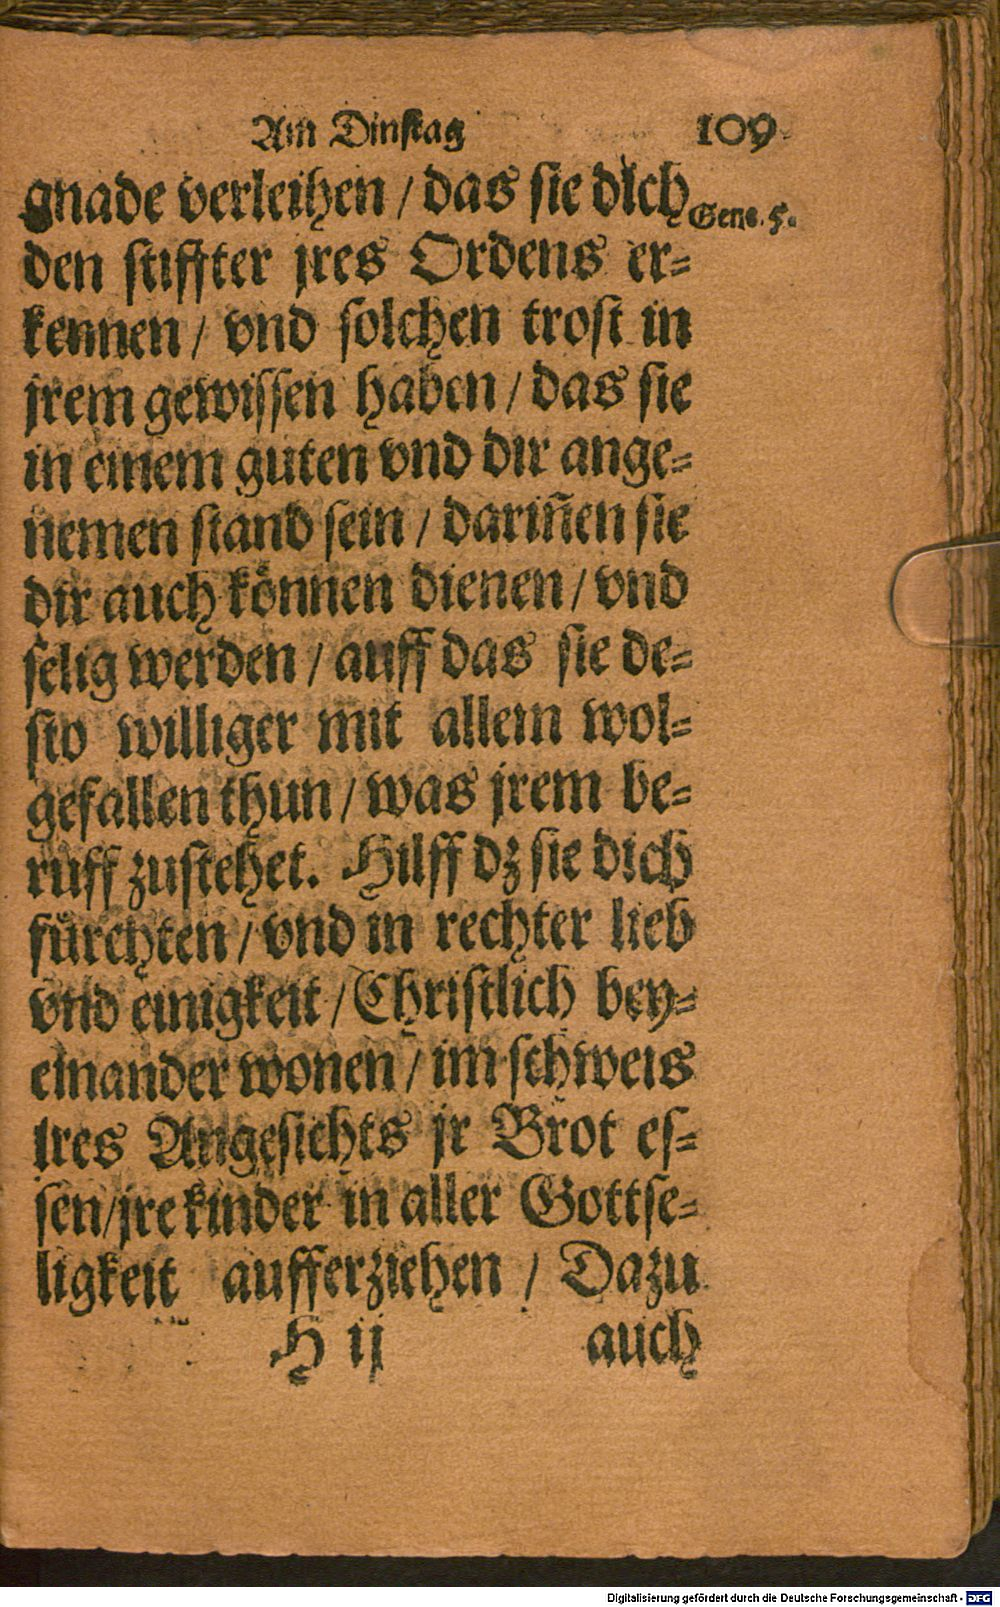 Am Dinstag 109
gnade verleihen / das sie dich
Gene. 5.
den stiffter jres Ordens er=
kennen / vnd solchen trost in
jrem gewissen haben / das sie
in einem guten vnd dir ange=
nemen stand sein / dariñen sie
dir auch können dienen / vnd
selig werden / auff das sie de=
sto williger mit allem wol=
gefallen thun / was jrem be=
ruff zustehet. Hilff dz sie dich
fürchten / vnd in rechter lieb
vnd einigkeit / Christlich bey=
einander wonen / im schweis
jres Angesichts jr Brot es=
sen / jre kinder in aller Gottse=
ligkeit aufferziehen / Dazu
H ij auch
Digitalisierung gefördert durch die Deutsche Forschungsgemeinschaft - DFG